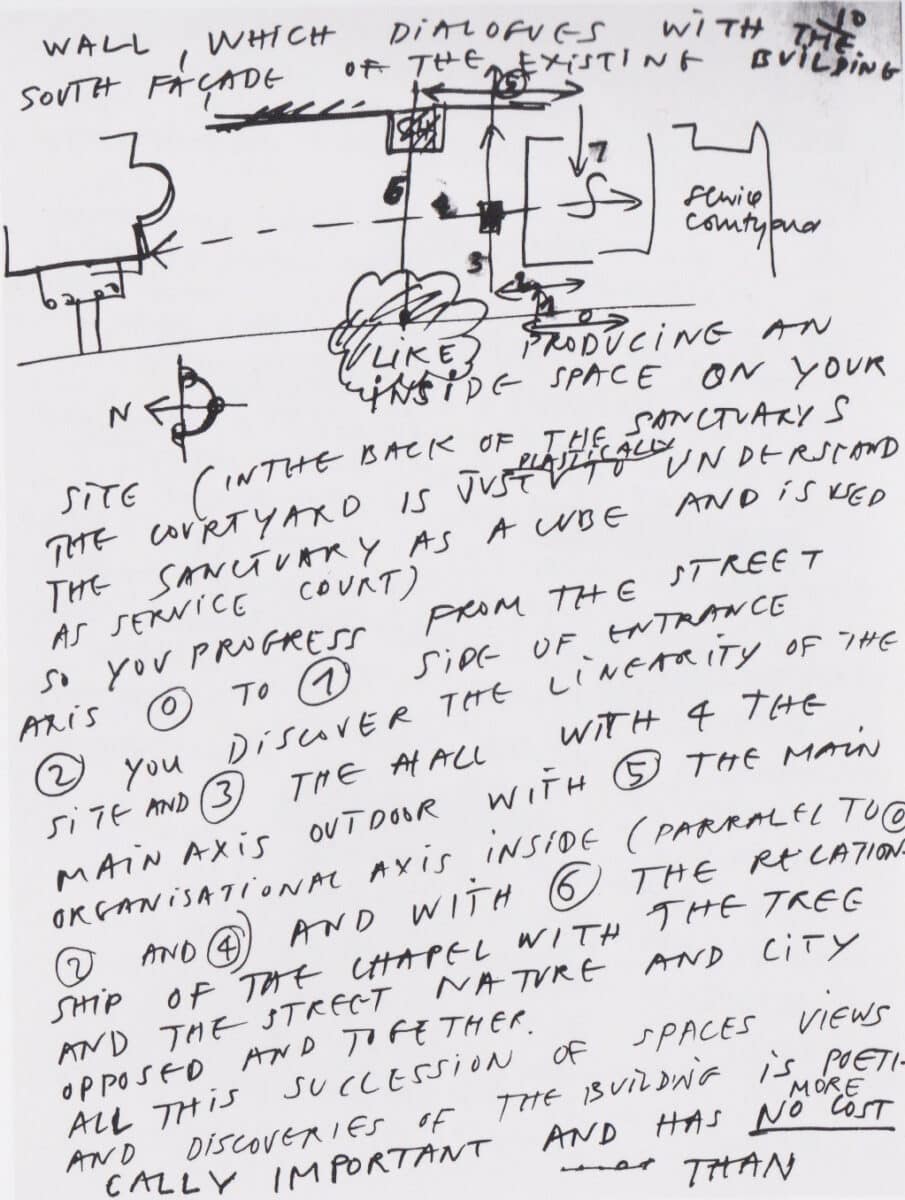 10
WALL, WHICH DIALOGUES WITH THE
SOUTH FAÇADE OF THE EXISTING BUILDING
5
7
6
4
service
courtyard
3
2
1
0
N
LIKE PRODUCING AN
INSIDE SPACE ON YOUR
SITE (IN THE BACK OF THE SANCTUARY S
THE COURTYARD IS JUST PLASTICALLY TO UNDERSTAND
THE SANCTUARY AS A CUBE AND IS USED
AS SERVICE COURT)
SO YOU PROGRESS FROM THE STREET
AXIS 0 TO 1 SIDE OF ENTRANCE
2 YOU DISCOVER THE LINEARITY OF THE
SITE AND 3 THE HALL WITH 4 THE
MAIN AXIS OUTDOOR WITH 5 THE MAIN
ORGANISATIONAL AXIS INSIDE (PARRALEL TO 0
2 AND 4) AND WITH 6 THE RELATION-
SHIP OF THE CHAPEL WITH THE TREE
AND THE STREET NATURE AND CITY
OPPOSED AND TOGETHER.
ALL THIS SUCCESSION OF SPACES VIEWS
AND DISCOVERIES OF THE BUILDING IS POETI-
CALLY IMPORTANT AND HAS NO MORE COST
THAN